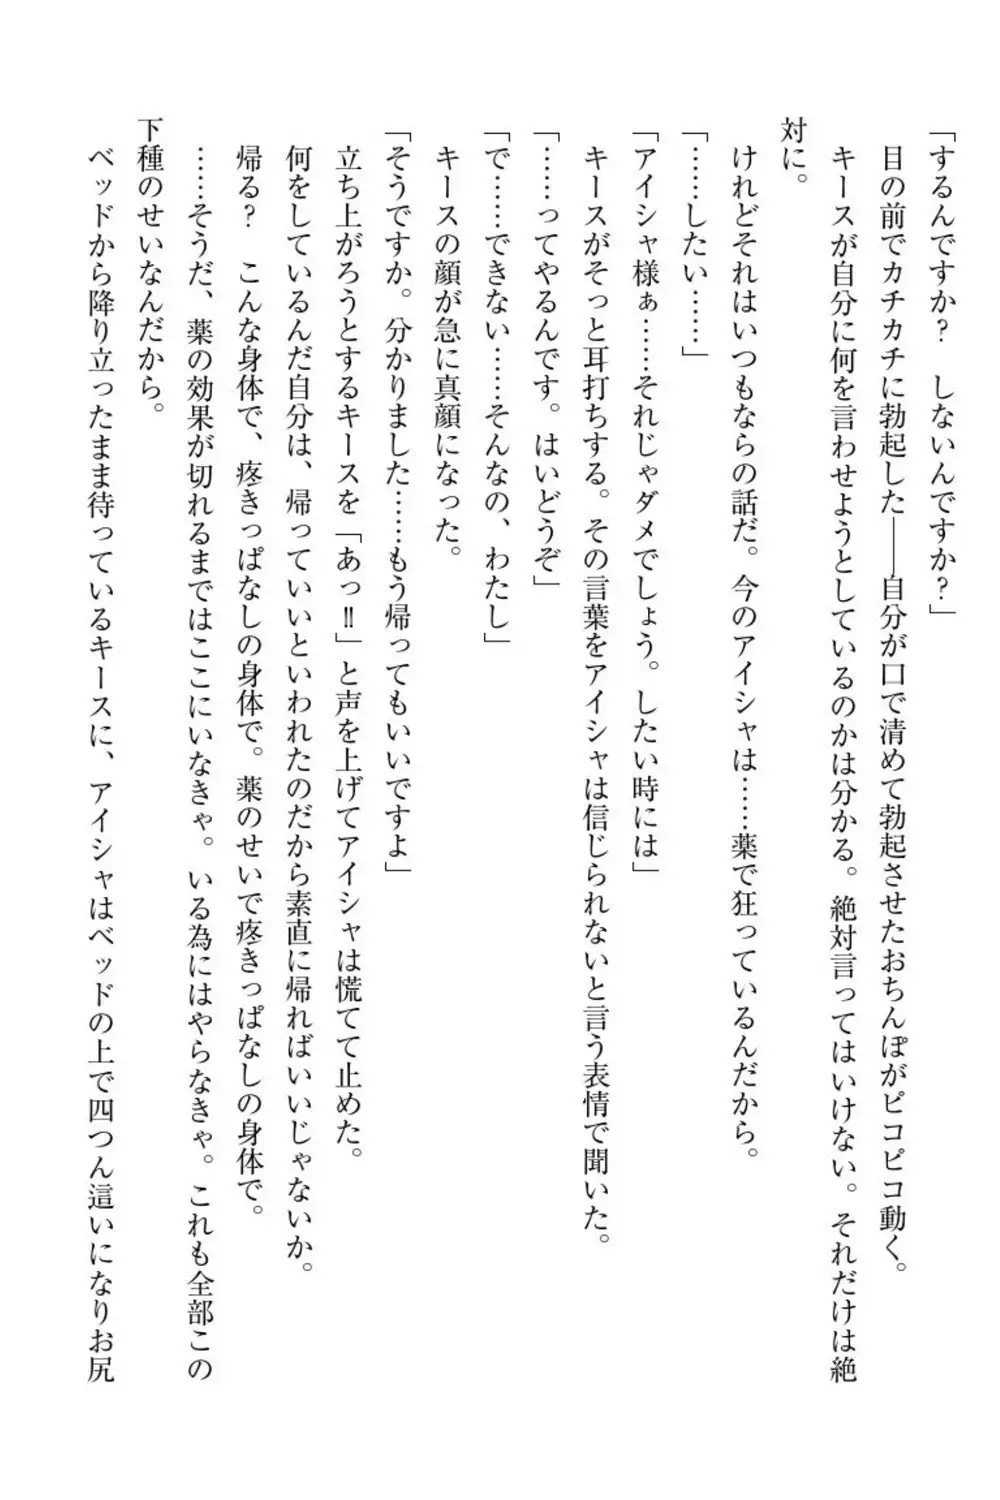 「するんですか？　しないんですか？」
目の前でカチカチに勃起した――自分が口で清めて勃起させたおちんぽがピコピコ動く。
キースが自分に何を言わせようとしているのかは分かる。絶対言ってはいけない。それだけは絶
対に。
けれどそれはいつもならの話だ。今のアイシャは……薬で狂っているんだから。
「……したい……」
「アイシャ様ぁ……それじゃダメでしょう。したい時には」
キースがそっと耳打ちする。その言葉をアイシャは信じられないと言う表情で聞いた。
「……ってやるんです。はいどうぞ」
「で……できない……そんなの、わたし」
キースの顔が急に真顔になった。
「そうですか。分かりました……もう帰ってもいいですよ」
立ち上がろうとするキースを「あっ‼」と声を上げてアイシャは慌てて止めた。
何をしているんだ自分は、帰っていいといわれたのだから素直に帰ればいいじゃないか。
帰る？　こんな身体で、疼きっぱなしの身体で。薬のせいで疼きっぱなしの身体で。
……そうだ、薬の効果が切れるまではここにいなきゃ。いる為にはやらなきゃ。これも全部この
下種のせいなんだから。
ベッドから降り立ったまま待っているキースに、アイシャはベッドの上で四つん這いになりお尻